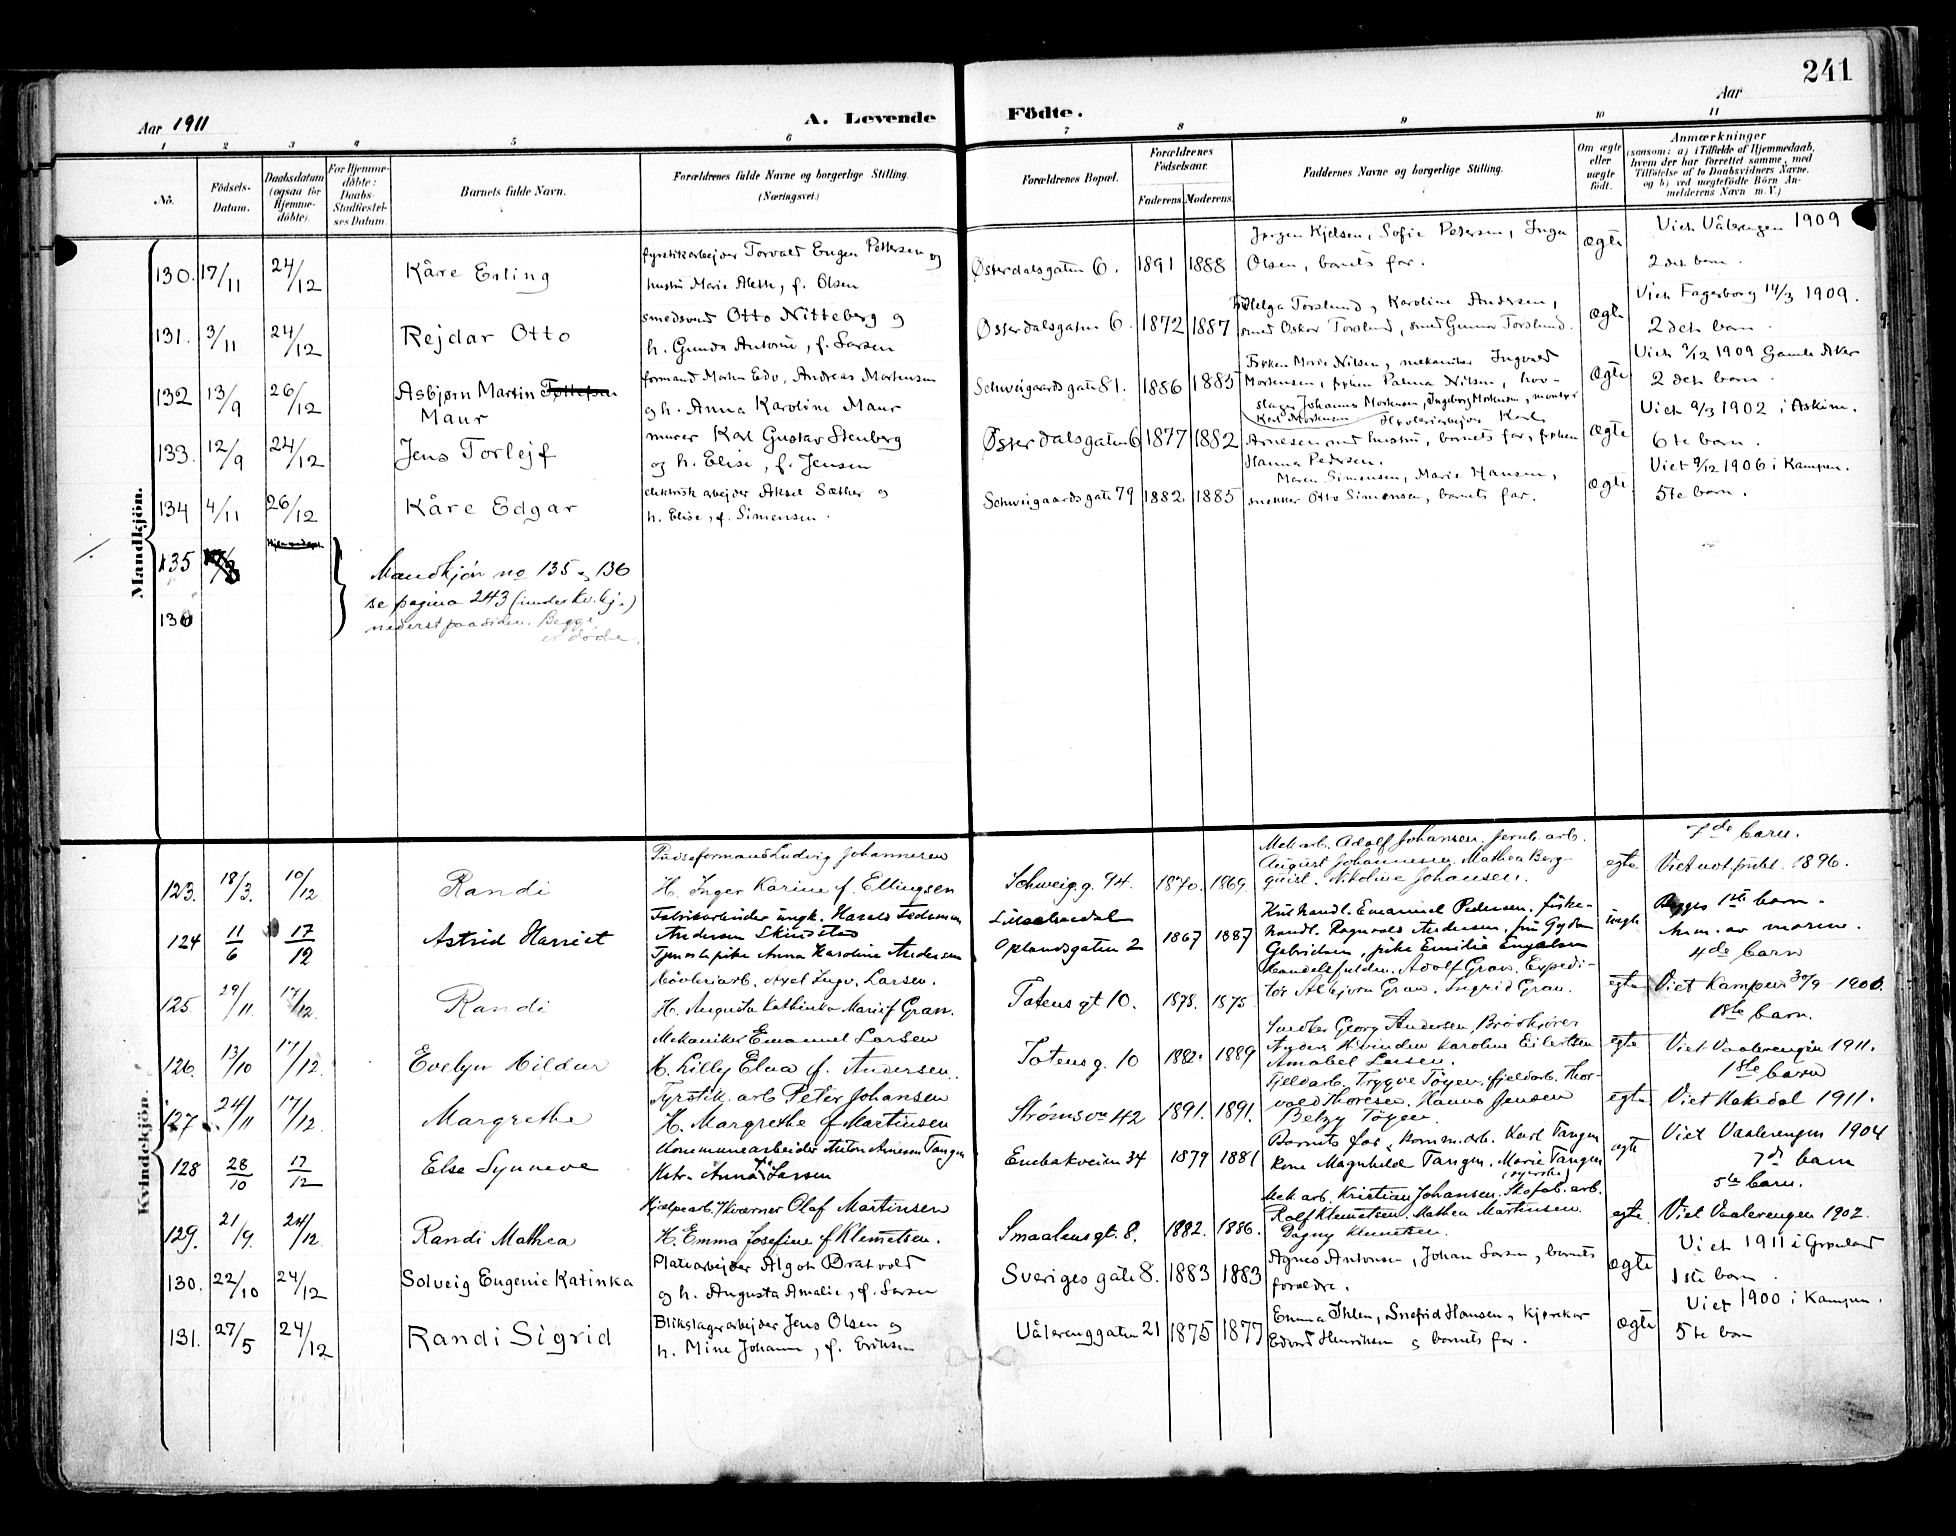 241
Aar 1911
A. Levende Födte.
Aar
1 2 3 4 5 6 7 8 9 10 11
No.
Födsels-Datum.
Daabsdatum (ogsaa for Hjemme-döbte).
For Hjemme-döbte: Daabs-Stadfæstel-ses Datum
Barnets fulde Navn.
Forældrenes fulde Navne og borgerlige Stilling.
(Næringsvei.)
Forældrenes Bopæl.
Forældrenes Födselsaar.
Faderens. Moderens.
Faddernes Navne og borgerlige Stilling.
Om ægte eller uægte födt.
Anmærkninger
(saasom: a) i Tilfælde af Hjemmedaab,
hvem der har forrettet samme, med
Tilföielse af to Daabsvidners Navne.
og b) ved uægtefödte Börn An-
melderens Navn m. V.)
Mandkjön.
130. 17/11 24/12 Kåre Erling
fyrstikarbejder Torvald Eugen Pettersen og
hustru Marie Alette, f. Olsen
Østerdalsgaten 6. 1891 1888
Jørgen Kjelsen, Sofie Pedersen, Inga
Olsen, barnets far.
ægte
Viet Vålerengen 1909
2 det barn.
131. 3/11 24/12 Rejdar Otto
smedsvend Otto Nitteberg og
h. Gunda Antonie, f. Larsen
Østerdalsgaten 6. 1872 1887
Helga Torslund, Karoline Andersen,
smed Oskar Torslund, smed Gunnar Torslund.
ægte
Viet Fagerborg 14/3 1909.
2 det barn.
132 13/9 26/12 Asbjørn Martin
Maur
formand Martin Edv. Andreas Mortensen
og h. Anna Karoline Maur
Schweigaardsgate 81. 1886 1885
Frøken Marie Nilsen, mekaniker Ingvald
Mortensen, frøken Palma Nilsen, hov-
slager Johannes Mortensen, Ingeborg Mortensen, montør
Karl Mortensen
ægte
Viet 7/12 1909 Gamle Aker
2 det barn.
133. 12/9 24/12 Jens Torlejf
murer Karl Gustav Stenberg
og h. Elise, f. Jensen
Østerdalsgaten 6 1877 1882
Høvleriarbejder Karl
Arnesen med hustru, barnets far, frøken
Hanna Pedersen.
ægte
Viet 9/3 1902 i Askim.
6te barn.
134 4/11 26/12 Kåre Edgar
elektrisk arbejder Aksel Sæther og
h. Elise, f. Simensen.
Schweigaardsgate 79 1882. 1885
Maren Simensen, Marie Hansen,
snekker Otto Simensen, barnets far.
ægte
Viet 9/12 1906 i Kampen.
5te barn.
135
136
Mandkjön no 135 og 136
se pagina 243 (under Kv.kj.)
nederst paa siden. Begge
er døde.
Kvindekjön.
123. 18/3. 10/12 Randi
Pudseformand Ludvig Johannesen
H. Inger Karine f. Ellingsen
Schweig.g. 94. 1870. 1869.
Mek arb. Adolf Johansen, Jernb. arb.
August Johannesen. Mathea Berg-
quist. Nikoline Johansen.
egte
7de barn.
Viet not.publ. 1896.
124 11/6 17/12 Astrid Harriet
Fabrikarbeider ungk. Harald Federsen
Andersen Skindstad
Tjenestepike Anna Karoline Andersen
Lillestrøm
Oplandsgaten 2 1867 1887
Kulhandl. Emanuel Pedersen, fiske-
handl. Ragnvald Andersen, fru Gyda
Gabrielsen, pike Emilie Engelsen
uegte
Begges 1ste barn.
Anm. av moren.
125 29/11. 17/12. Randi
Høvleriarb. Axel Ingv. Larsen.
H. Augusta Kathinka Marie f Gran.
Totens gt. 10. 1878. 1875
Handelsfuldm. Adolf Gran, Expedi-
tør Asbjørn Gran. Ingrid Gran.
egte
4de barn
Viet Kampen 30/9 1900.
126. 13/10 17/12. Evelyn Hildur
Mekaniker Emanuel Larsen
H. Lilly Elna f. Andersen.
Totensg. 10 1882. 1889
Snedker Georg Andersen, Brødkjører
Anders Karoline Eilertsen
Amabel Larsen.
egte
1ste barn.
Viet Vaalerengen 1911.
127 24/11 17/12. Margrethe
Fyrstik. arb Peter Johansen
H. Margrethe f Martinsen
Strømsvn 42 1891. 1891.
Fjeldarb. Trygve Tøyen, fjeldarb. Thor-
vald Thoresen. Hanna Jensen
Betzy Tøyen
egte
1ste barn
Viet Hakedal 1911.
128 28/10 17/12 Else Synneve
Kommunearbeider Anton Arnesen Tangen
Hstr. Anna f. Larsen
Enebakveien 34 1879 1881
Barnets far, komm.arb. Karl Tangen
Kone Magnhilde Tangen. Marie Tangen
(syerske)
egte
Viet Vaalerengen 1904
7de barn
129. 21/9. 24/12. Randi Mathea
Hjælpearb. v/Kværner Olaf Martinsen
H. Emma Josefine f Klemetsen.
Smaalensgt. 8. 1882. 1886.
Mek arb. Kristian Johansen. Skofab.arb.
Rolf Klemetsen. Mathea Martinsen
Dagny Klemetsen.
egte
5te barn.
Viet Vaalerengen 1902.
130. 22/10 24/12 Solveig Eugenie Katinka
Platearbejder Algot Bratvold
og h. Augusta Amalie, f. Larsen
Sveriges gate 8. 1883 1883
Agnes Antonsen, Johan Larsen, barnets
forældre.
ægte
Viet 1911 i Grønland
1ste barn.
131. 27/5 24/12 Randi Sigrid
Blikslagerarbejder Jens Olsen og
h. Mine Johanne, f. Eriksen
Vålerenggaten 21 1875 1877
Emma Ihlen, Snefrid Hansen, kjørekar
Edvard Henriksen og barnets far.
ægte
Viet 1900 i Kampen.
5te barn